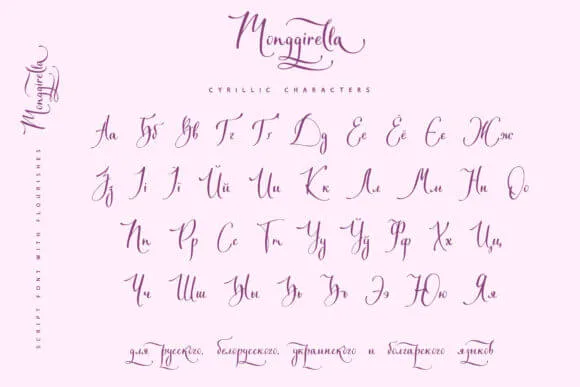 Monggirella
CYRILLIC CHARACTERS
Monggirella
SCRIPT FONT WITH FLOURISHES
Аа Бб Вв Гг Ґґ Дд Ее Ёё Єє Жж
Зз Іі Її Йй Ии Кк Лл Мм Нн Оо
Пп Рр Сс Тт Уу Ўў Фф Хх Цц
Чч Шш Ыы Ьь Ъъ Ээ Юю Яя
для русского, белорусского, украинского и болгарского языков